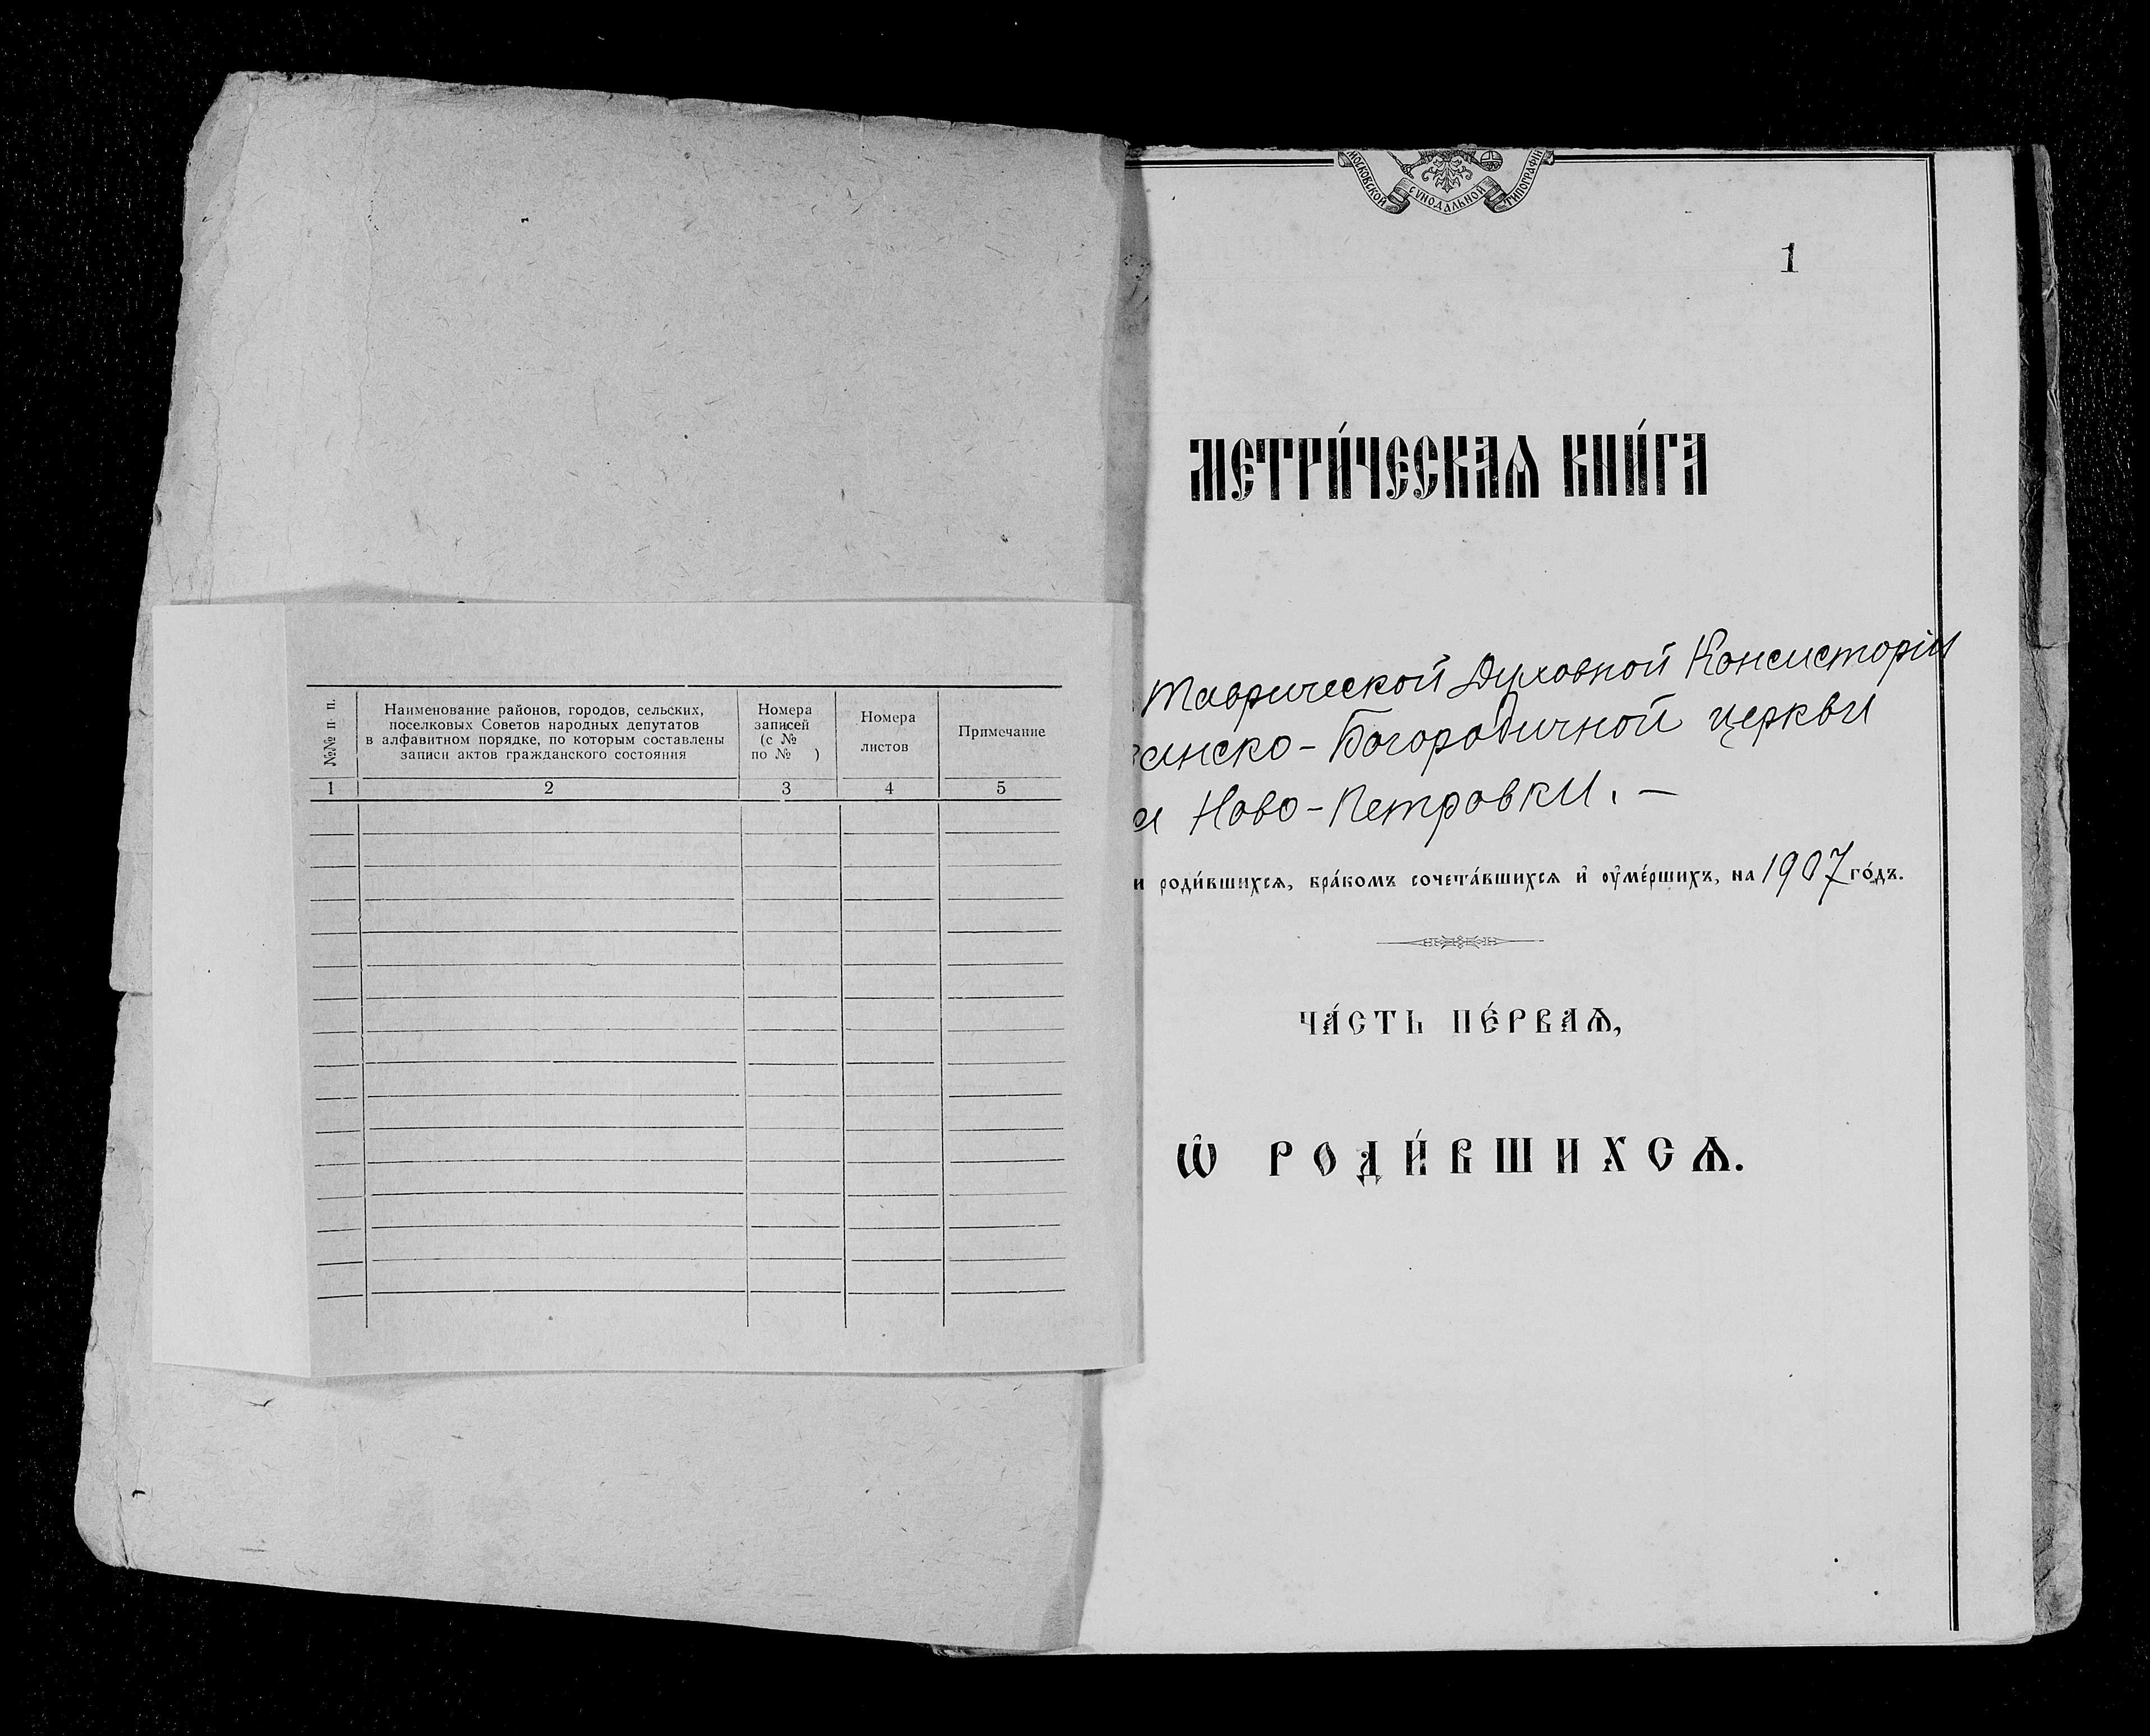 №№ п п.
Наименование районов, городов, сельских,
поселковых Советов народных депутатов
в алфавитном порядке, по которым составлены
записи актов гражданского состояния
Номера
записей
(с №
по № )
Номера
листов
Примечание
1 2 3 4 5
МОСКОВСКОЙ СѴНОДАЛЬНОЙ ТИПОГРАФІИ
1
МЕТРИ́ЧЕСКАѦ КНИ́ГА
Таврической Духовной Консисторіи
анско-Богородичной церкви
Ново-Петровки. –
и роди́вшихсѧ, бра́комъ сочета́вшихсѧ и҆ ѹ҆ме́ршихъ, на 1907 го́дъ.
ЧА́СТЬ ПЕ́РВАѦ,
Ѽ РОДИ́ВШИХСѦ.